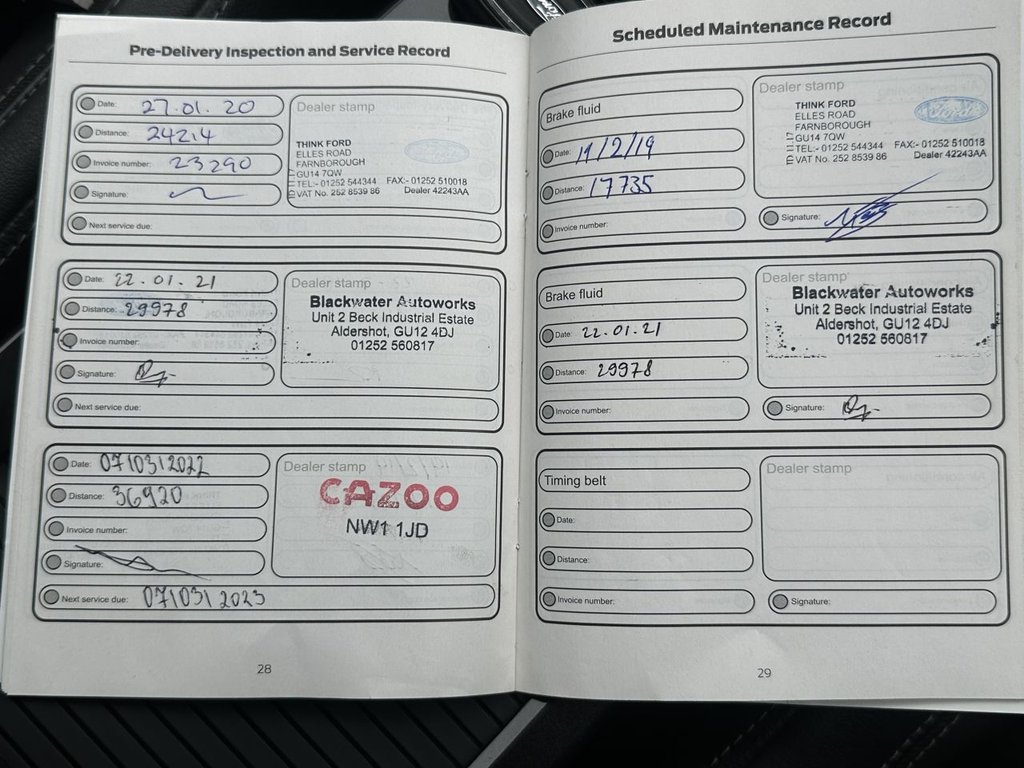 Pre-Delivery Inspection and Service Record
Date: 27.01.20
Distance: 24214
Invoice number: 23290
Signature:
Next service due:
Dealer stamp
THINK FORD
ELLES ROAD
FARNBOROUGH
GU14 7QW
TEL:- 01252 544344 FAX:- 01252 510018
VAT No. 252 8539 86 Dealer 42243AA
Ford
Date: 22.01.21
Distance: 29978
Invoice number:
Signature:
Next service due:
Dealer stamp
Blackwater Autoworks
Unit 2 Beck Industrial Estate
Aldershot, GU12 4DJ
01252 560817
Date: 07/03/2022
Distance: 36920
Invoice number:
Signature:
Next service due: 07/03/2023
Dealer stamp
CAZOO
NW1 1JD
28
Scheduled Maintenance Record
Brake fluid
Date: 19/2/19
Distance: 17735
Invoice number:
Dealer stamp
THINK FORD
ELLES ROAD
FARNBOROUGH
GU14 7QW
TEL:- 01252 544344 FAX:- 01252 510018
VAT No. 252 8539 86 Dealer 42243AA
Ford
Signature:
Brake fluid
Date: 22.01.21
Distance: 29978
Invoice number:
Dealer stamp
Blackwater Autoworks
Unit 2 Beck Industrial Estate
Aldershot, GU12 4DJ
01252 560817
Signature:
Timing belt
Date:
Distance:
Invoice number:
Dealer stamp
Signature:
29